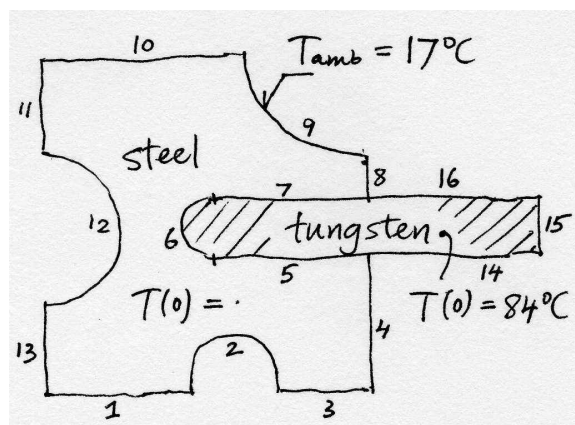 10
Tamb = 17°C
11
9
steel
7
8
16
12
6
tungsten
15
5
14
T(0) = .
T(0) = 84°C
4
13
2
1
3